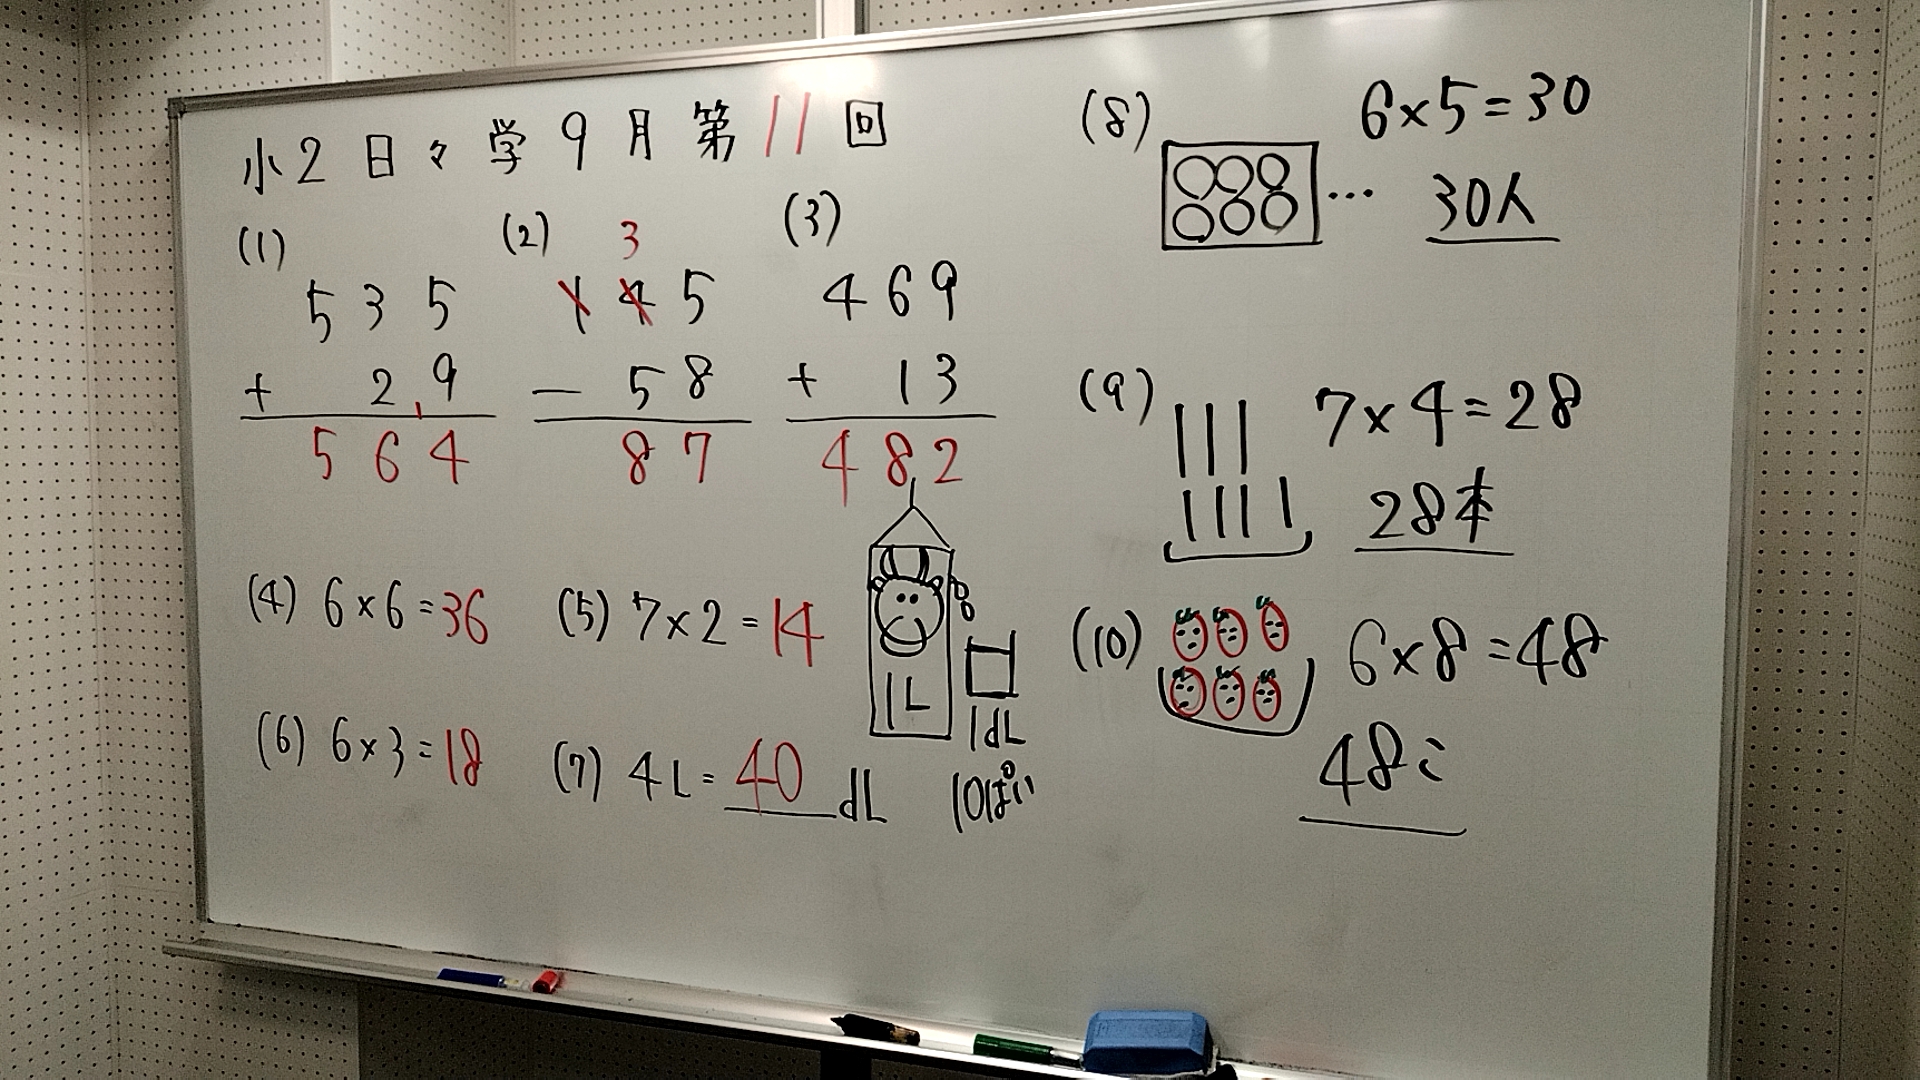 小2 日々学 9月 第11回
(1)
535
+ 29
564
(2)
3
145
- 58
87
(3)
469
+ 13
482
(4) 6×6=36
(5) 7×2=14
(6) 6×3=18
(7) 4L=40dL
1L
1dL
10ぱい
(8)
6×5=30
…
30人
(9)
7×4=28
28本
(10)
6×8=48
48こ